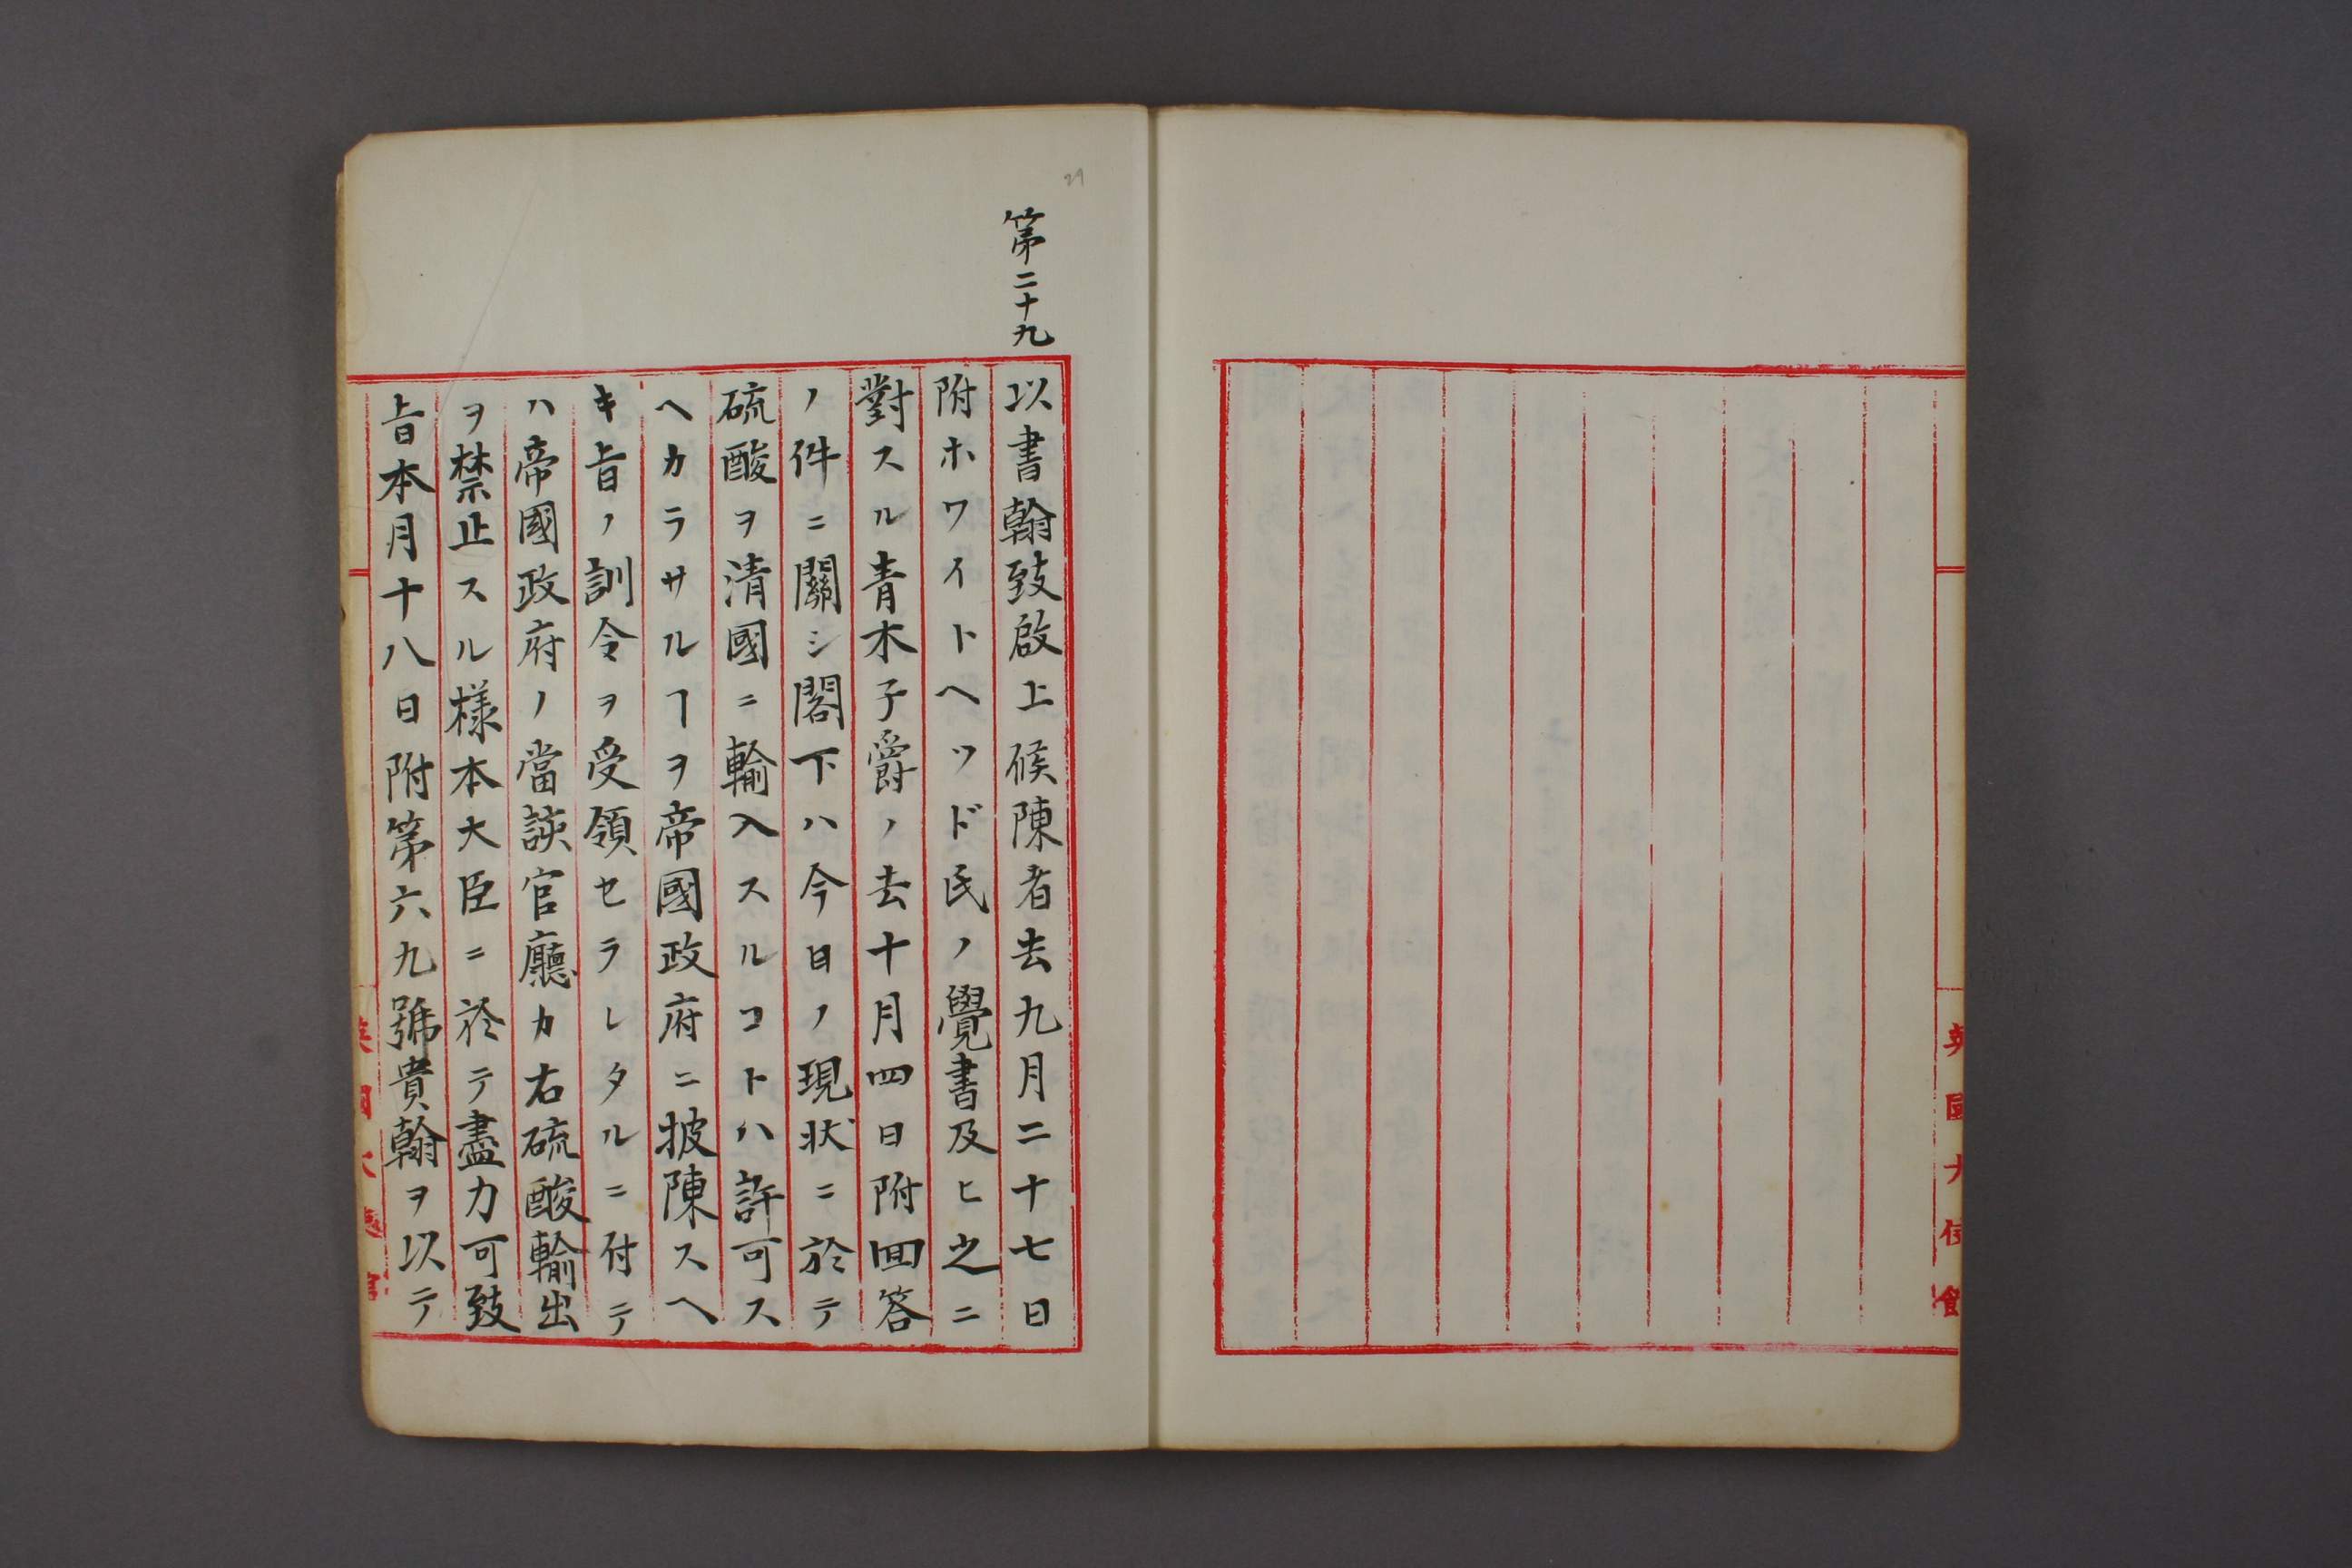 英國大使館
29
第二十九
以書翰致啟上候陳者去九月二十七日
附ホワイトヘッド氏ノ覺書及ヒ之ニ
對スル青木子爵ノ去十月四日附回答
ノ件ニ關シ閣下ハ今日ノ現状ニ於テ
硫酸ヲ清國ニ輸入スルコトハ許可ス
ヘカラサルヿヲ帝國政府ニ披陳スヘ
キ旨ノ訓令ヲ受領セラレタルニ付テ
ハ帝國政府ノ當該官廳カ右硫酸輸出
ヲ禁止スル樣本大臣ニ於テ盡力可致
旨本月十八日附第六九號貴翰ヲ以テ
英國大使館